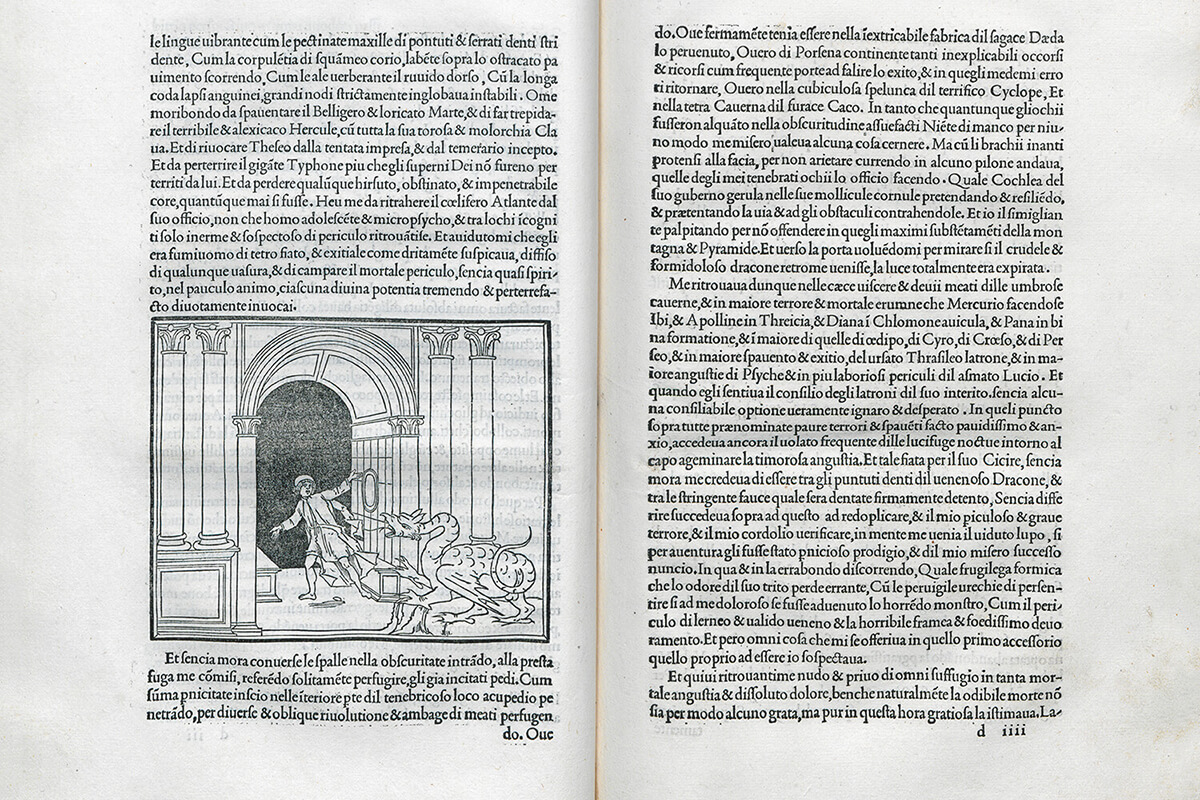 le lingue uibrante cum le pectinate maxille di pontuti & serrati denti stri
dente, Cum la corpulẽtia di squãmeo corio, labẽte sopra lo ostracato pa
uimento scorrendo, Cum le ale uerberante il ruuido dorso, Cũ la longa
coda lapsi anguinei, grandi nodi strictamente inglobaua instabili. Ome
moribondo da spauentare il Belligero & loricato Marte, & di far trepida-
re il terribile & alexicaco Hercule, cũ tutta la sua torosa & molorchia Cla
ua. Et di riuocare Theseo dalla tentata impresa, & dal temerario incepto.
Et da perterrire il gigãte Typhone piu che gli superni Dei nõ fureno per
territi da lui. Et da perdere qualũque hirsuto, obstinato, & impenetrabile
core, quantũque mai si fusse. Heu me da ritrahere il cœlifero Atlante dal
suo officio, non che homo adolescẽte & micropsycho, & tra lochi ĩcogni
ti solo inerme & sospectoso di periculo ritrouãtise. Et auidutomi che egli
era fumiuomo di tetro fiato, & exitiale come dritamẽte suspicaua, diffiso
di qualunque uasura, & di campare il mortale periculo, sencia quasi spiri-
to, nel pauculo animo, ciascuna diuina potentia tremendo & perterrefa-
cto diuotamente inuocai.
Et sencia mora conuerse le spalle nella obscuritate intrãdo, alla presta
fuga me cõmisi, referẽdo solitamẽte perfugire, gli gia incitati pedi. Cum
sũma pnicitate inscio nelle ĩteriore pte dil tenebricoso loco acupedio pe
netrãdo, per diuerse & oblique riuolutione & ambage di meati perfugen
do. Oue
do. Oue fermamẽte tenia essere nella ĩextricabile fabrica dil sagace Dæda
lo peruenuto, Ouero di Porsena continente tanti inexplicabili occorsi
& ricorsi cum frequente porte ad falire lo exito, & in quegli medemi erro
ri ritornare, Ouero nella cubiculosa spelunca del terrifico Cyclope, Et
nella tetra Cauerna dil furace Caco. In tanto che quantunque gliochii
fusseron alquãto nella obscuritudine assuefacti Niẽte di manco per niu-
no modo me misero ualeua alcuna cosa cernere. Ma cũ li brachii inanti
protensi alla facia, per non arietare currendo in alcuno pilone andaua,
quelle degli mei tenebrati ochii lo officio facendo. Quale Cochlea del
suo guberno gerula nelle sue mollicule cornule pretendando & resiliẽdo,
& prætentando la uia & ad gli obstaculi contrahendole. Et io il simiglian
te palpitando per nõ offendere in quegli maximi substẽtamẽti della mon
tagna & Pyramide. Et uerso la porta uoluẽdomi per mirare si il crudele &
formidoloso dracone retro me uenisse, la luce totalmente era expirata.
Me ritrouaua dunque nelle cæce uiscere & deuii meati dille umbrose
cauerne, & in maiore terrore & mortale erumne che Mercurio facendose
Ibi, & Apolline in Threicia, & Diana ĩ Chlomone auicula, & Pana in bi
na formatione, & ĩ maiore di quelle di œdipo, di Cyro, di Crœso, & di Per
seo, & in maiore spauento & exitio, del ursato Thrasileo latrone, & in ma-
iore angustie di Psyche & in piu laboriosi periculi dil asmato Lucio. Et
quando egli sentiua il consilio degli latroni dil suo interito. sencia alcu-
na consiliabile optione ueramente ignaro & desperato. In queli puncto
sopra tutte prænominate paure terrori & spauẽti facto pauidissimo & an-
xio, accedeua ancora il uolato frequente dille lucifuge noctue intorno al
capo ageminare la timorosa angustia. Et tale fiata per il suo Cicire, sencia
mora me credeua di essere tra gli puntuti denti dil uenenoso Dracone, &
tra le stringente fauce quale sera dentate firmamente detento, Sencia diffe
rire succedeua sopra ad questo ad redoplicare, & il mio piculoso & graue
terrore, & il mio cordolio uerificare, in mente me uenia il uiduto lupo, si
per auentura gli fusse stato pnicioso prodigio, & dil mio misero successo
nuncio. In qua & in la errabondo discorrendo, Quale frugilega formica
che lo odore dil suo trito perde errante, Cũ le peruigile urechie di persen-
tire si ad me doloroso se fusse aduenuto lo horrẽdo monstro, Cum il peri-
culo di lerneo & ualido ueneno & la horribile framea & foedissimo deuo
ramento. Et pero omni cosa che mi se offeriua in quello primo accessorio
quello proprio ad essere io sospectaua.
Et quiui ritrouantime nudo & priuo di omni suffugio in tanta mor-
tale angustia & dissoluto dolore, benche naturalmẽte la odibile morte nõ
sia per modo alcuno grata, ma pur in questa hora gratiosa la istimaua. La-
d iiii